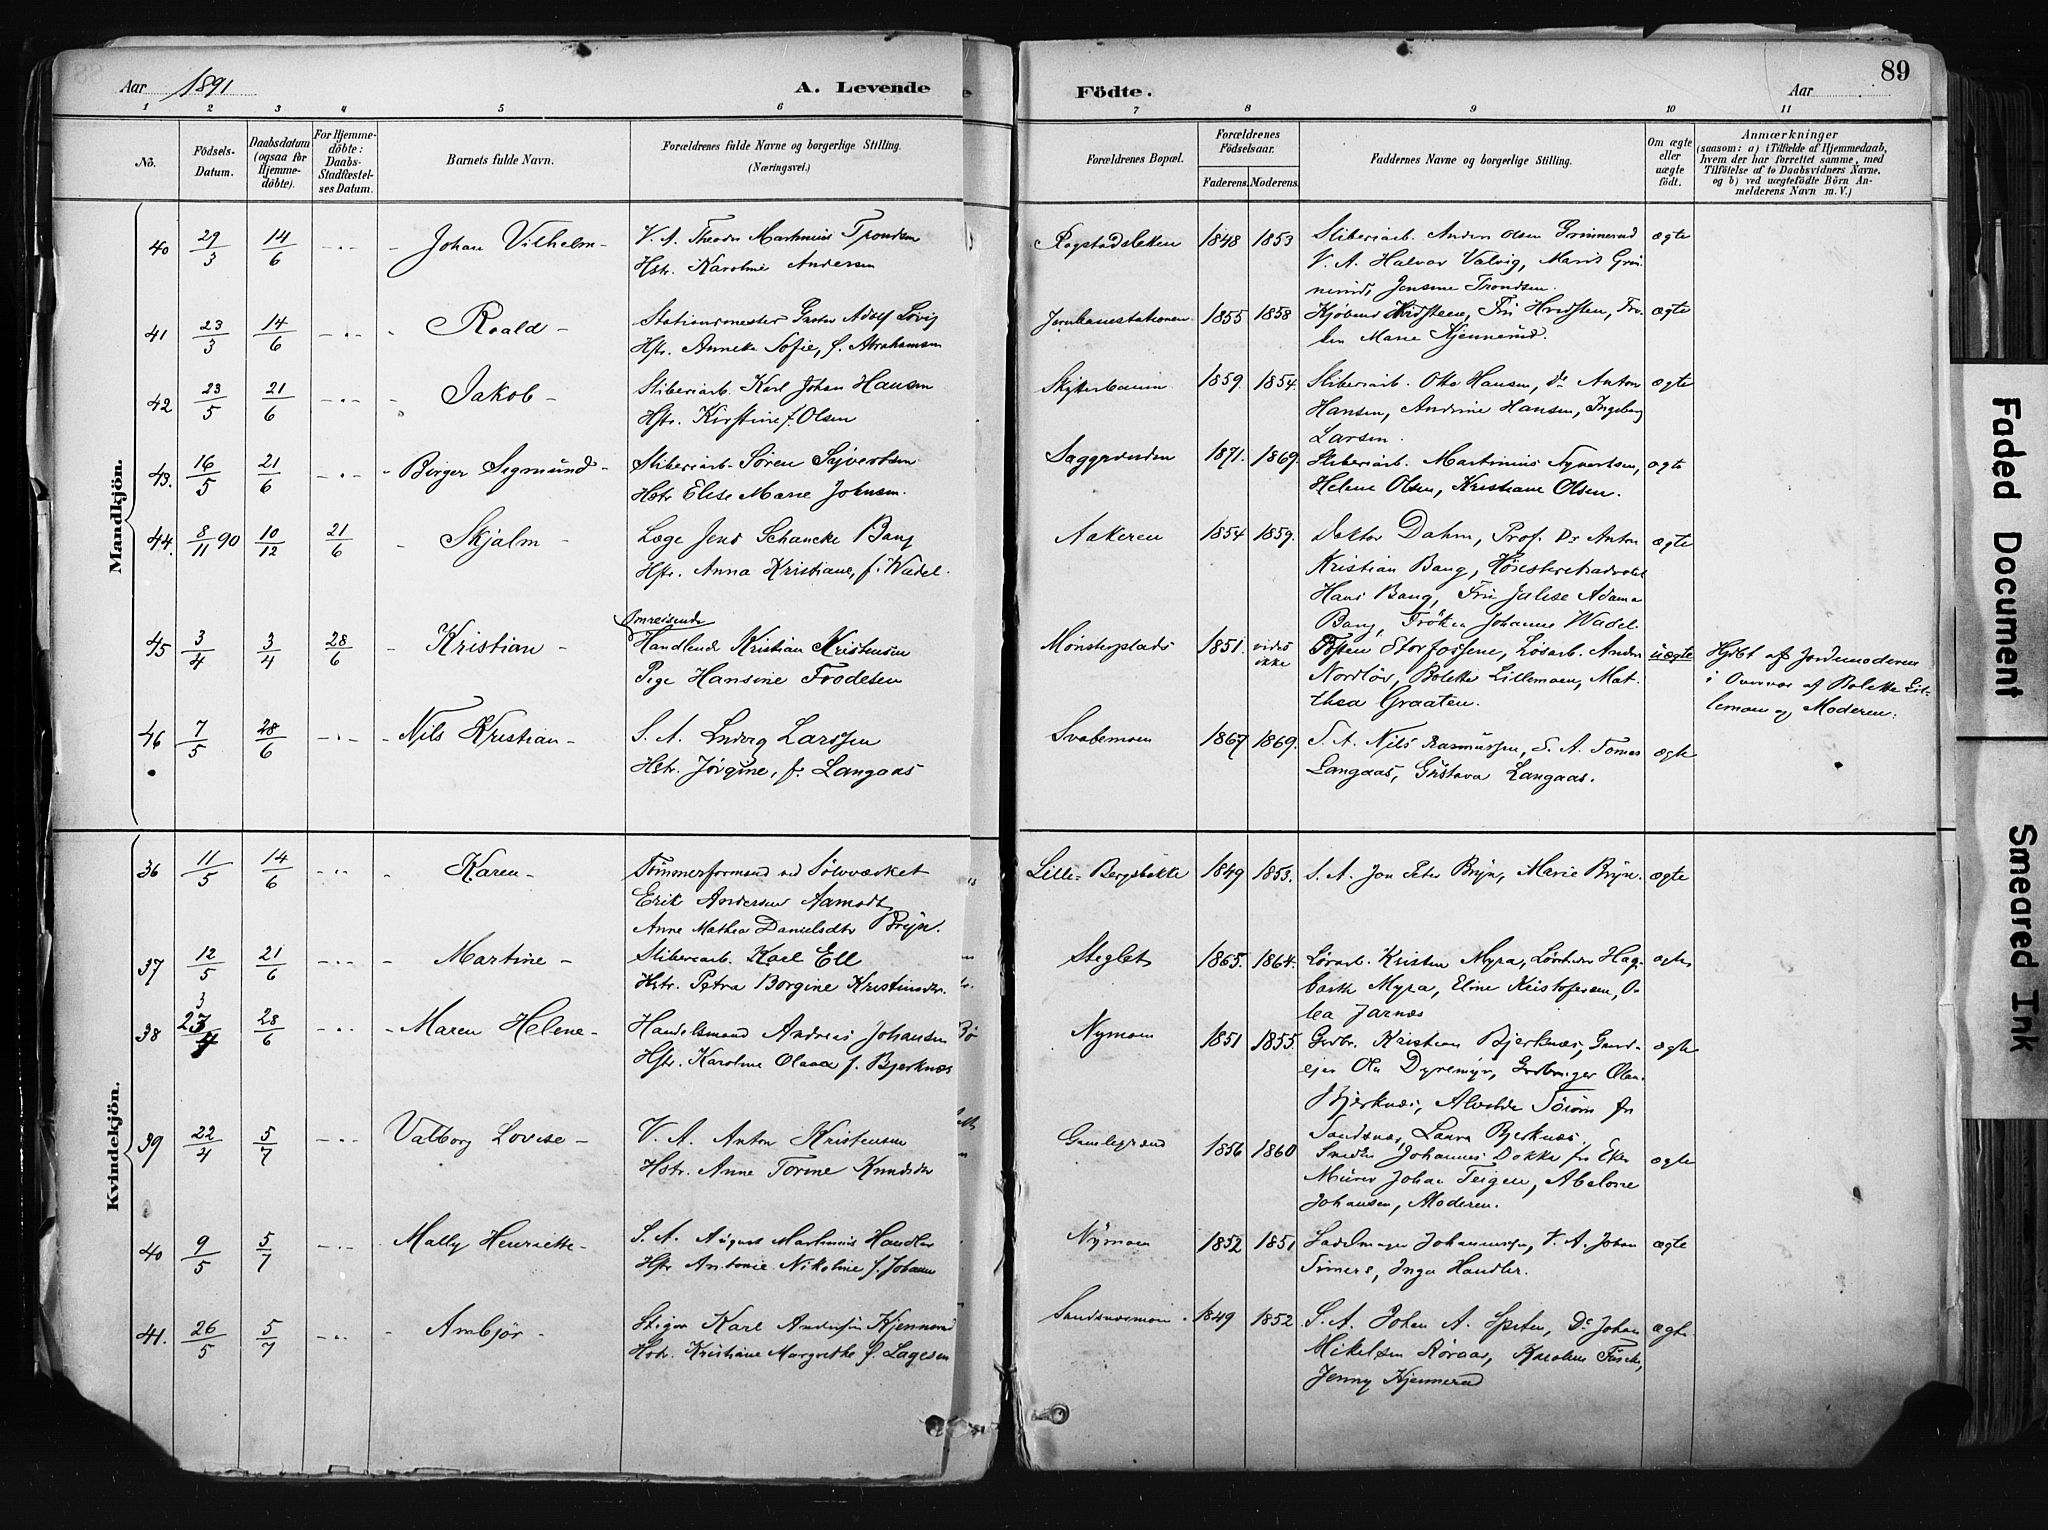 Aar 1891
A. Levende
Födte.
Aar
89
1 2 3 4 5 6 7 8 9 10 11
No.
Födsels-
Datum.
Daabsdatum
(ogsaa for
Hjemme-
döbte).
For Hjemme-
döbte:
Daabs-
Stadfæstel-
ses Datum.
Barnets fulde Navn.
Forældrenes fulde Navne og borgerlige Stilling.
(Næringsvei.)
Forældrenes Bopæl.
Forældrenes
Födselsaar.
Faderens. Moderens.
Faddernes Navne og borgerlige Stilling.
Om ægte
eller
uægte
födt.
Anmærkninger
(saasom: a) i Tilfælde af Hjemmedaab,
hvem der har forrettet samme, med
Tilföielse af to Daabsvidners Navne,
og b) ved uægtefödte Börn An-
melderens Navn m. V.)
Mandkjön.
40 29/3 14/6 Johan Vilhelm
V. A. Theodor Martinius Trondsen
Hstr. Karoline Andersen
1848 1853
Stiberiarb. Anders Olsen Grinnerud
V. A. Halvor Valvig, Marit Grin-
neruds Jensine Trondsen.
ægte
41 23/3 14/6 Roald
Stationsmester Gustav Adolf Lövig
Hstr. Anneka Sofie, f. Abrahamsen
Jernbanestationen 1855 1858
Hvidsteen, Fru Hvidsten, Frö-
ken Marie Kjennerud.
ægte
42 23/5 21/6 Jakob
Stiberiarb. Karl Johan Hansen
Hstr. Kirstine f. Olsen
1859 1854.
Stiberiarb. Otto Hansen, Do Anton
Hansen, Andrine Hansen, Ingeborg
Larsen.
ægte
43. 16/5 21/6 Borger Sigmund
Stiberiarb. Sören Syvertsen
Hstr Elise Marie Johnsen.
Saggrenden 1871. 1869.
Stiberiarb. Martinius Syvertsen,
Helene Olsen, Kristiane Olsen.
ægte
44. 8/11 90 10/12 21/6 Skjalm
Læge Jens Schancke Bang
Hstr. Anna Kristiane, f. Wedel.
Aakeren 1854 1859.
Doktor Dahm, Prof. Dr Anton
Kristian Bang, Höiesteretsadvokat
Hans Bang, Fru Julise Adama
Bang, Fröken Johanne Wedel.
ægte
45 3/4 3/4 28/6 Kristian
Omreisende
Handlende Kristian Kristensen
Pige Hansine Frodesen
Mönsterplads 1851. vides
ikke
Torsten Storfossene, Lösarb. Anders
Nordlöv, Bolette Lillemoen, Mat-
thea Graaten.
uægte
Hjdöbt af Jordemoderen
i Overvær af Bolette Lil-
lemoen og Moderen.
46 7/5 28/6 Nils Kristian
S. A. Ludvig Larssen
Hstr. Jörgine, f. Langaas
Svabemoen 1867 1869.
S. A. Nils Rasmussen, S. A. Tomas
Langaas, Gustava Langaas.
ægte
Kvindekjön.
36 11/5 14/6 Karen
Tömmerformand ved Sölvværket
Erik Andersen Aamodt
Anne Mathea Danielsdtr Bryn.
Lille-Bergsbakke 1849 1853.
S. A. Jon Peter Bryn, Marie Bryn.
ægte
37 12/5 21/6 Martine
Stiberiarb. Karl Ell
Hstr. Petra Borgine Kristinsdtr.
Steglet 1865. 1864.
Lösarb. Kristen Myra, Hag-
barth Myra, Eline Kristofersen, O-
lea Jarnæs
ægte
38 28/6 Maren Helene
Handelsmand Andreas Johansen
Hstr. Karoline Olava f. Bjerknæs
Nymoen 1851 1855.
Grdbr. Kristian Bjerknæs, Gaard-
ejer Ole Dyremyr, Grdbruger Olens
Bjerknæs, fra
Sandsnæs, Laura Bjerknæs.
ægte
39 22/4 5/7 Valborg Lovise
V. A. Anton Kristensen
Hstr. Anne Torine Knudsdtr
Gamlegrænd 1856 1860
Johannes Dokka fra Eker
Murer Johan Teigen, Abelone
Johansen, Moderen.
ægte
40 9/5 5/7 Mally Henriette
S. A. August Martinius Handler
Hstr Antonie Nikoline f. Johans
Nymoen 1852 1851
Sadelmager Johannessen, V. A. Johan
Simers, Inga Handler.
ægte
41. 26/5 5/7 Ambjör
Stiger Karl Andersen Kjennerud
Hstr. Kristiane Margrethe f. Lagesen
Sandsværmoen 1849 1852
S. A. Johan A. Spiten, Do Johan
Mikelsen Röraas, Karoline
Jenny Kjennerud
ægte
Faded Document
Smeared Ink